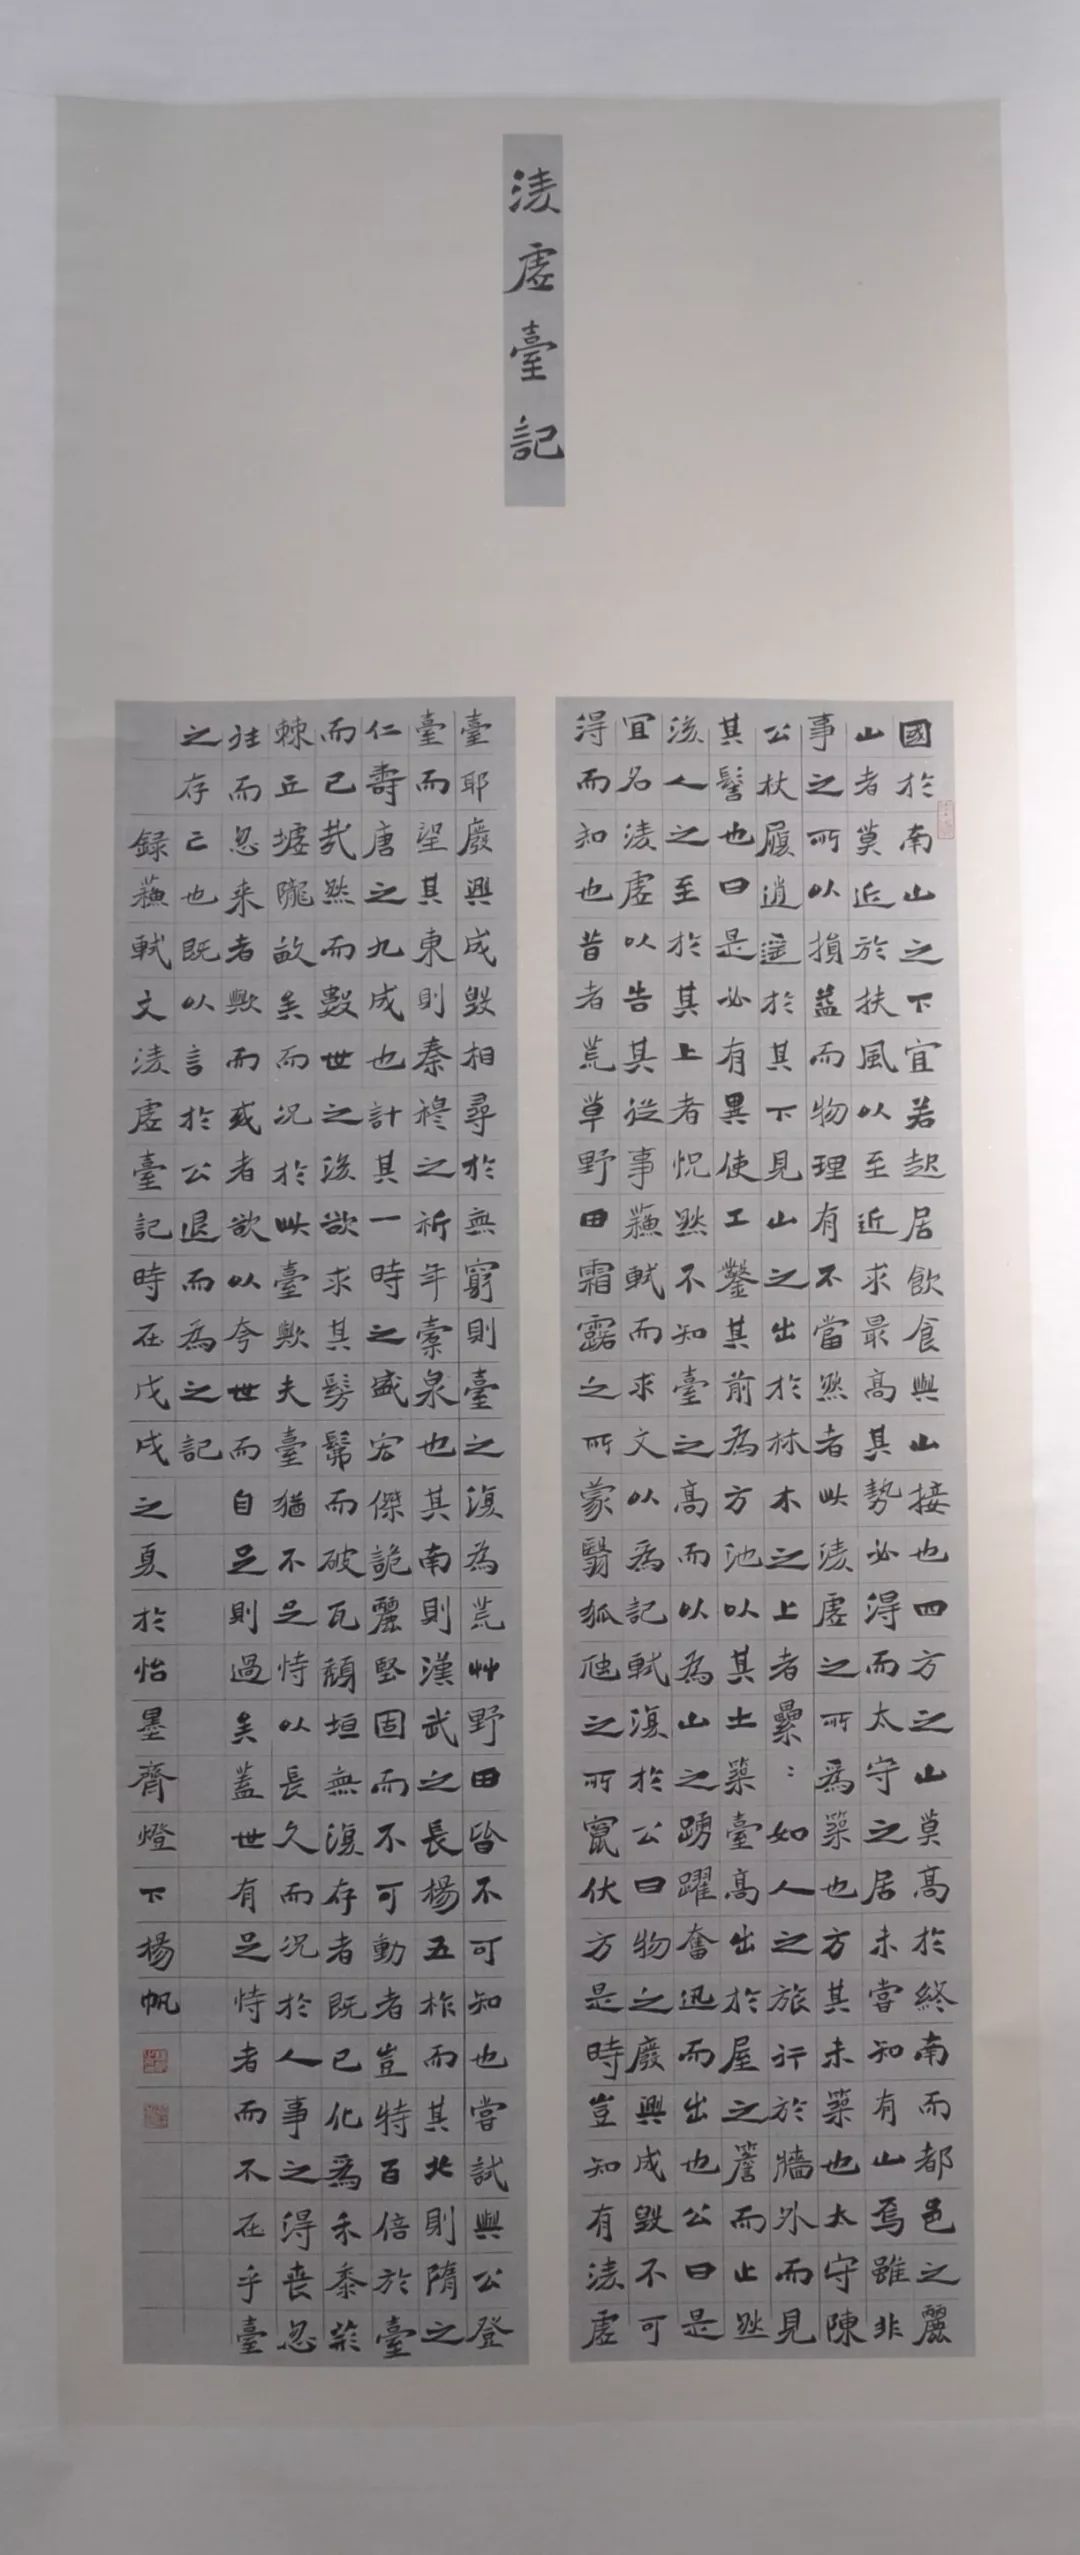 淩虛臺記
國於南山之下宜若起居飲食與山接也四方之山莫高於終南而都邑之麗
山者莫近於扶風以至近求最高其勢必得而太守之居未嘗知有山焉雖非
事之所以損益而物理有不當然者此淩虛之所為築也方其未築也太守陳
公杖履逍遥於其下見山之出於林木之上者纍:如人之旅行於牆外而見
其髻也曰是必有異使工鑿其前為方池以其土築臺高出於屋之簷而止然
後人之至於其上者怳然不知臺之高而以為山之踴躍奮迅而出也公曰是
宜名淩虛以告其從事蘇軾而求文以為記軾復於公曰物之廢興成毀不可
得而知也昔者荒草野田霜露之所蒙翳狐虺之所竄伏方是時豈知有淩虛
臺耶廢興成毀相尋於無窮則臺之復為荒艸野田皆不可知也嘗試與公登
臺而望其東則秦穆之祈年橐泉也其南則漢武之長楊五柞而其北則隋之
仁壽唐之九成也計其一時之盛宏傑詭麗堅固而不可動者豈特百倍於臺
而已哉然而數世之後欲求其髣髴而破瓦頹垣無復存者既已化為禾黍荊
棘丘墟隴畝矣而況於此臺歟夫臺猶不足恃以長久而況於人事之得喪忽
往而忽來者歟而或者欲以夸世而自足則過矣蓋世有足恃者而不在乎臺
之存亡也既以言於公退而為之記
錄蘇軾文淩虛臺記時在戊戌之夏於怡墨齋燈下楊帆